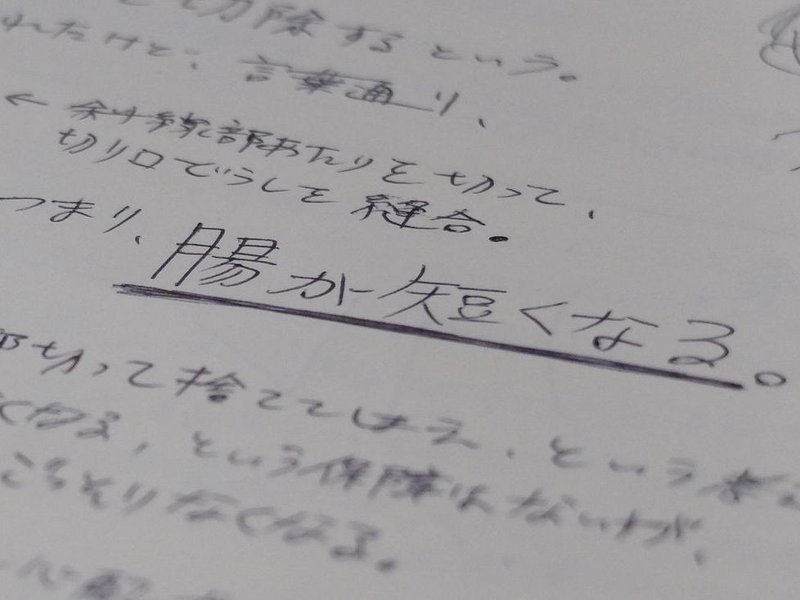 切除するという。
れたけど、言葉通り、
← 斜線部あたりを切って、
切り口どうしを縫合。
つまり、腸が短くなる。
切って捨ててしまえ、という
なる、という保障はないが、
ごっそりなくなる。
心配